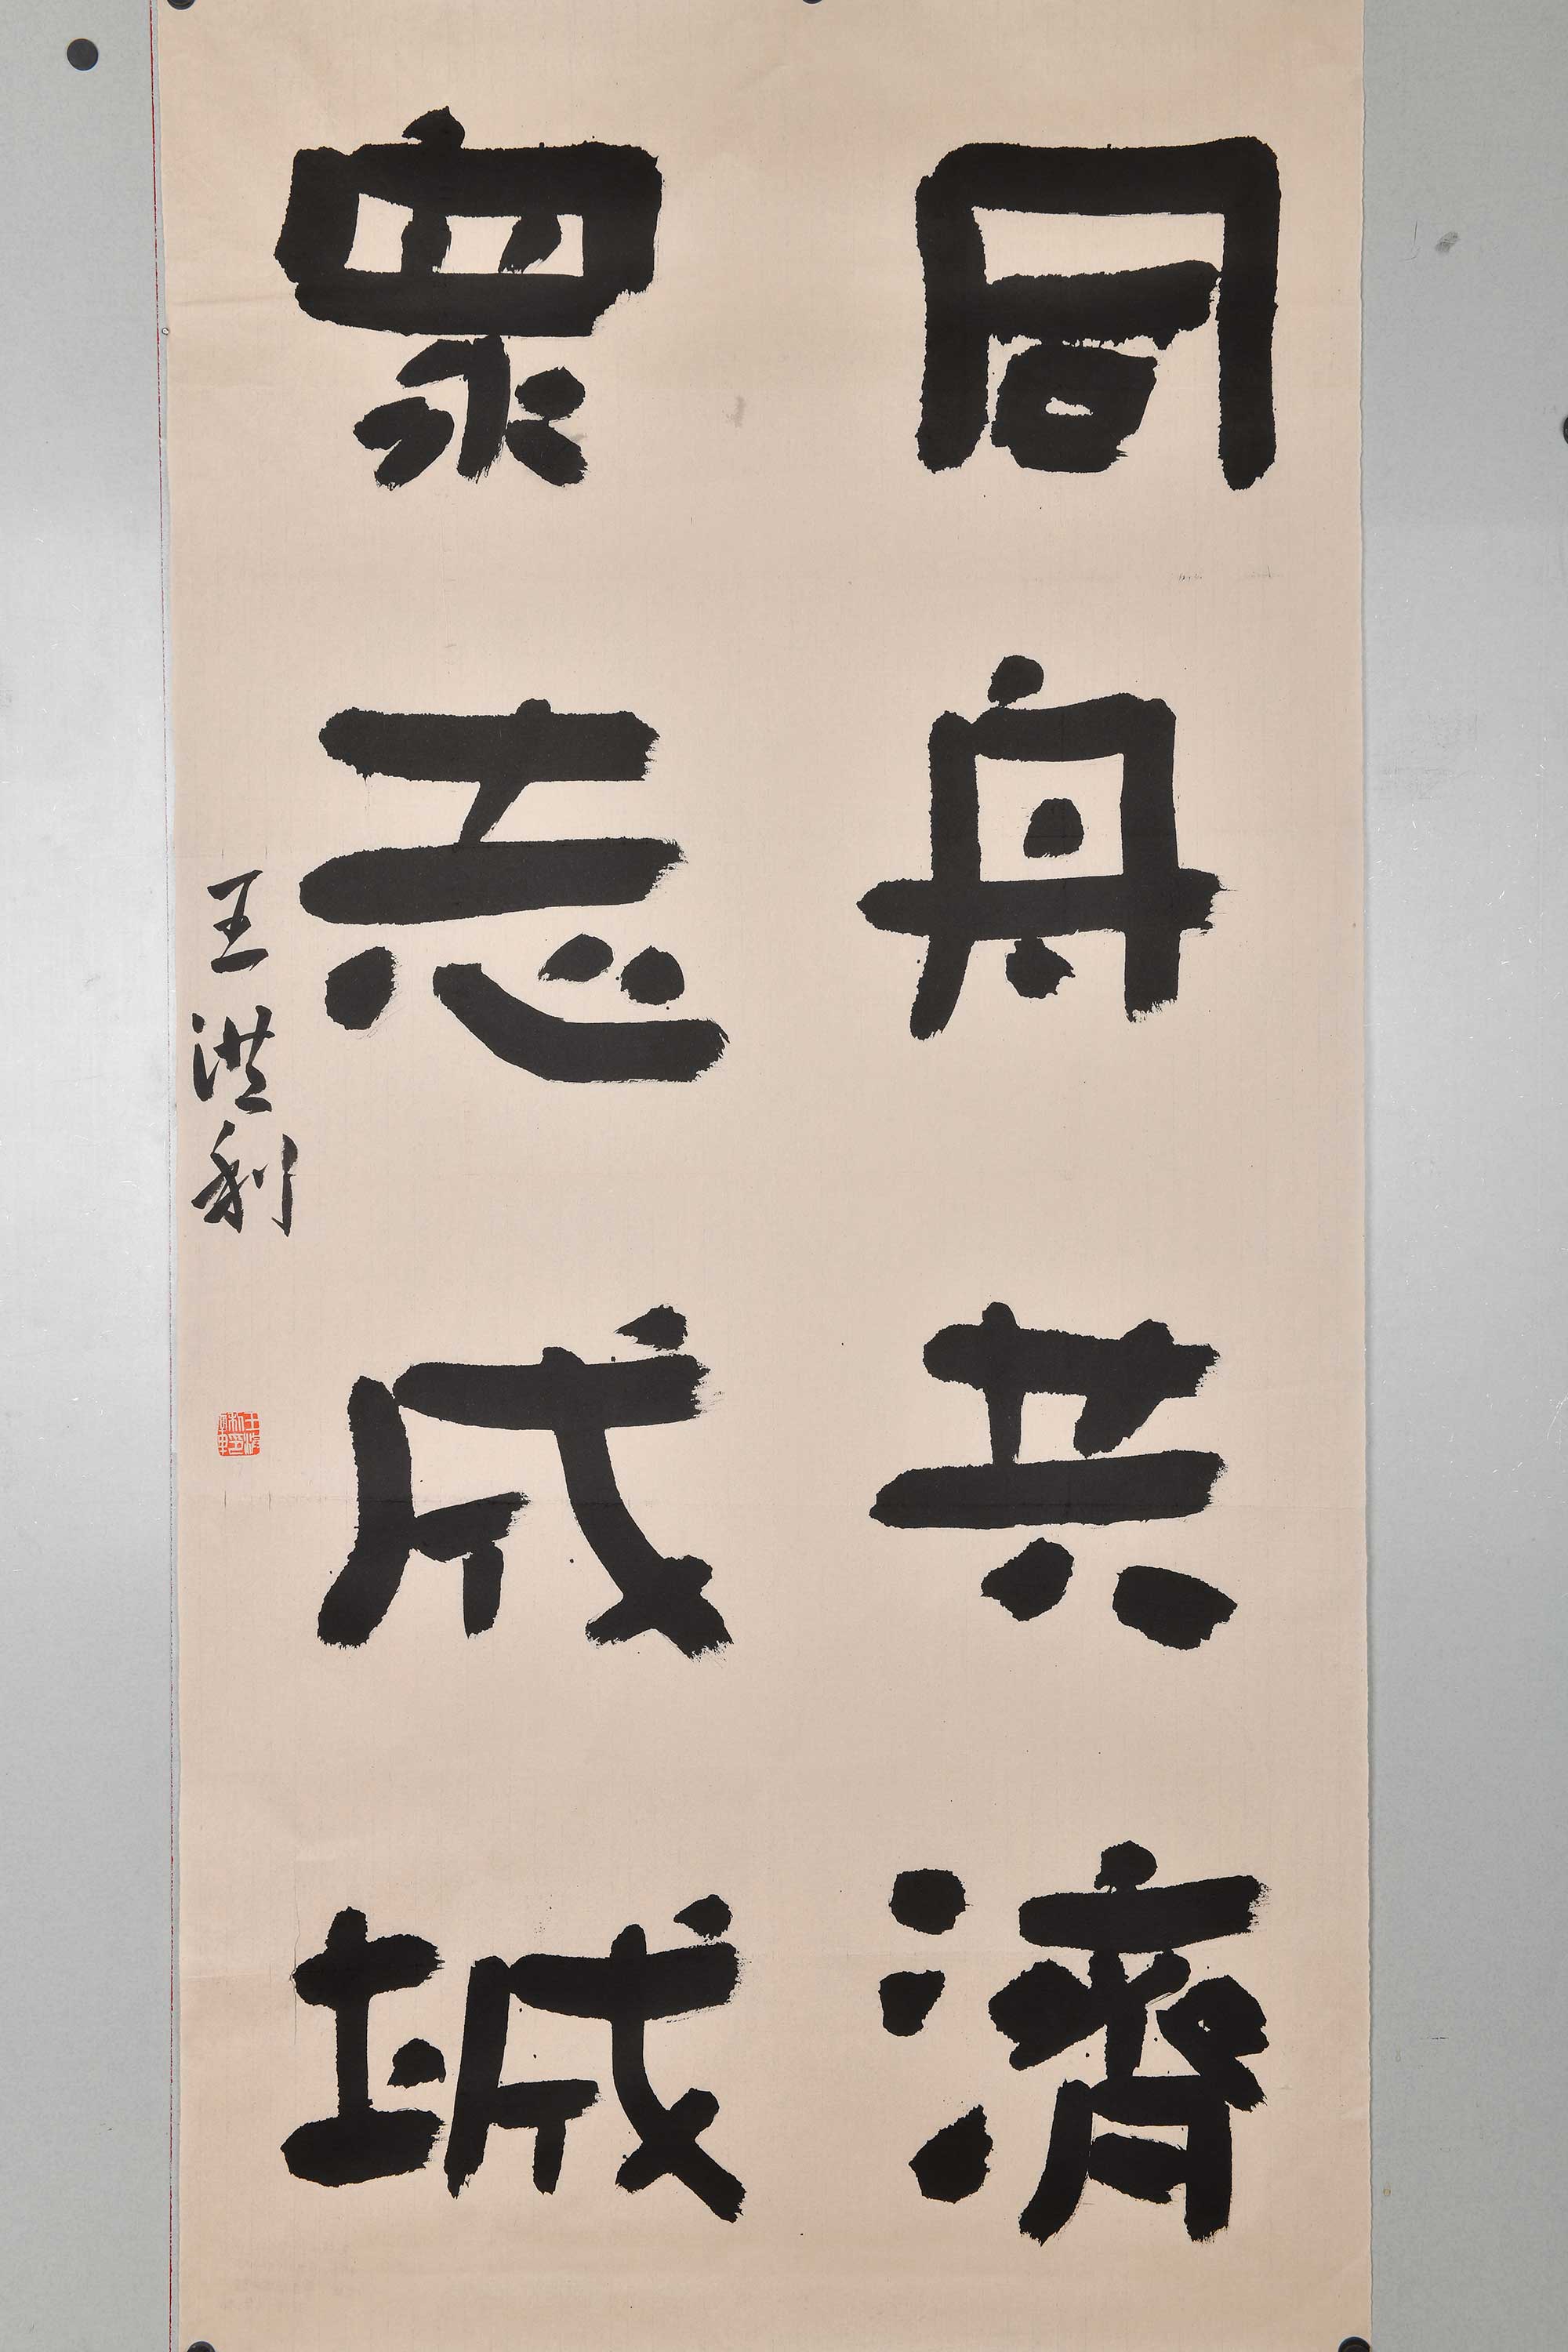 同舟共濟
眾志成城
王洪利